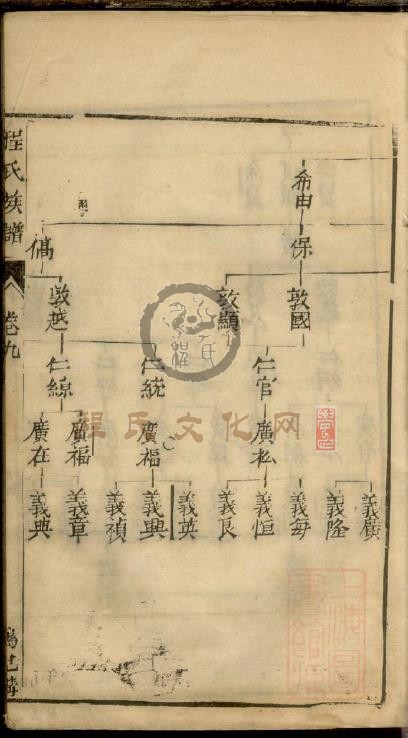 希由
保
傐
敦國
敦顯
敦越
仁官
仁統
仁線
廣松
廣福
廣福
廣在
義廣
義隆
義每
義恒
義良
義英
義興
義禎
義章
義典
程氏族譜
卷九
程氏文化网